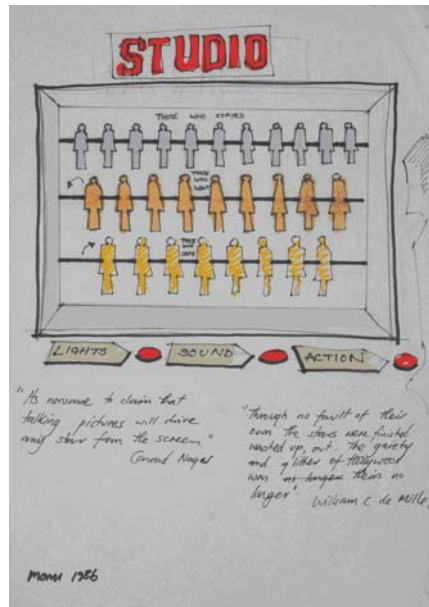 STUDIO
THOSE WHO STAYED
THOSE
WHO
WENT
THOSE
WHO
CAME
LIGHTS
SOUND
ACTION
"Its nonsense to claim that
talking pictures will drive
any star from the screen."
Conrad Nagel
"Through no fault of their
own the stars were finished
washed up, out. The gaiety
and glitter of Hollywood
was no longer theirs no
longer".
William C de Mille,
1986